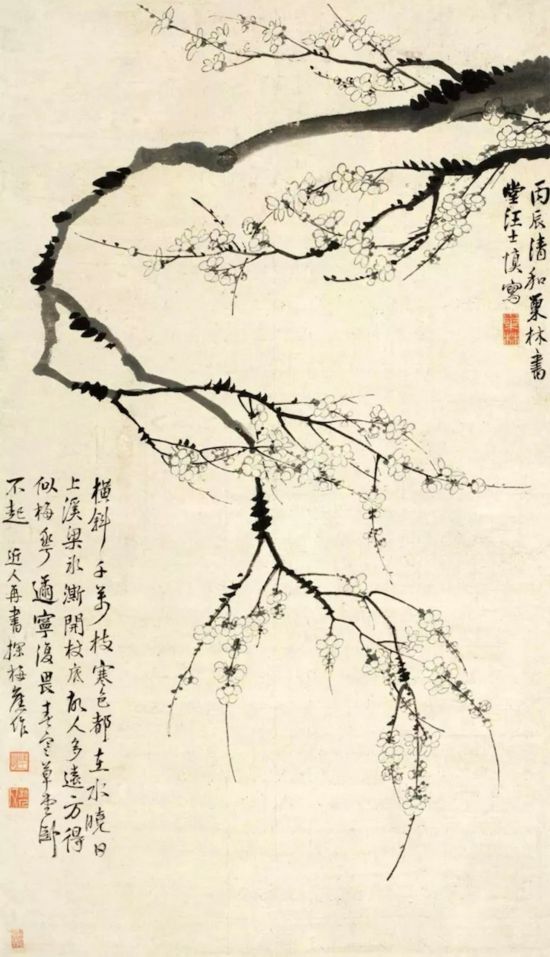 丙辰清和巢林書
堂汪士慎寫
橫斜千萬枝寒色都在水曉日
上溪梁氷澌開杖底故人多遠方得
似梅華邇寧復畏春寒草堂卧
不起 近人再書探梅舊作